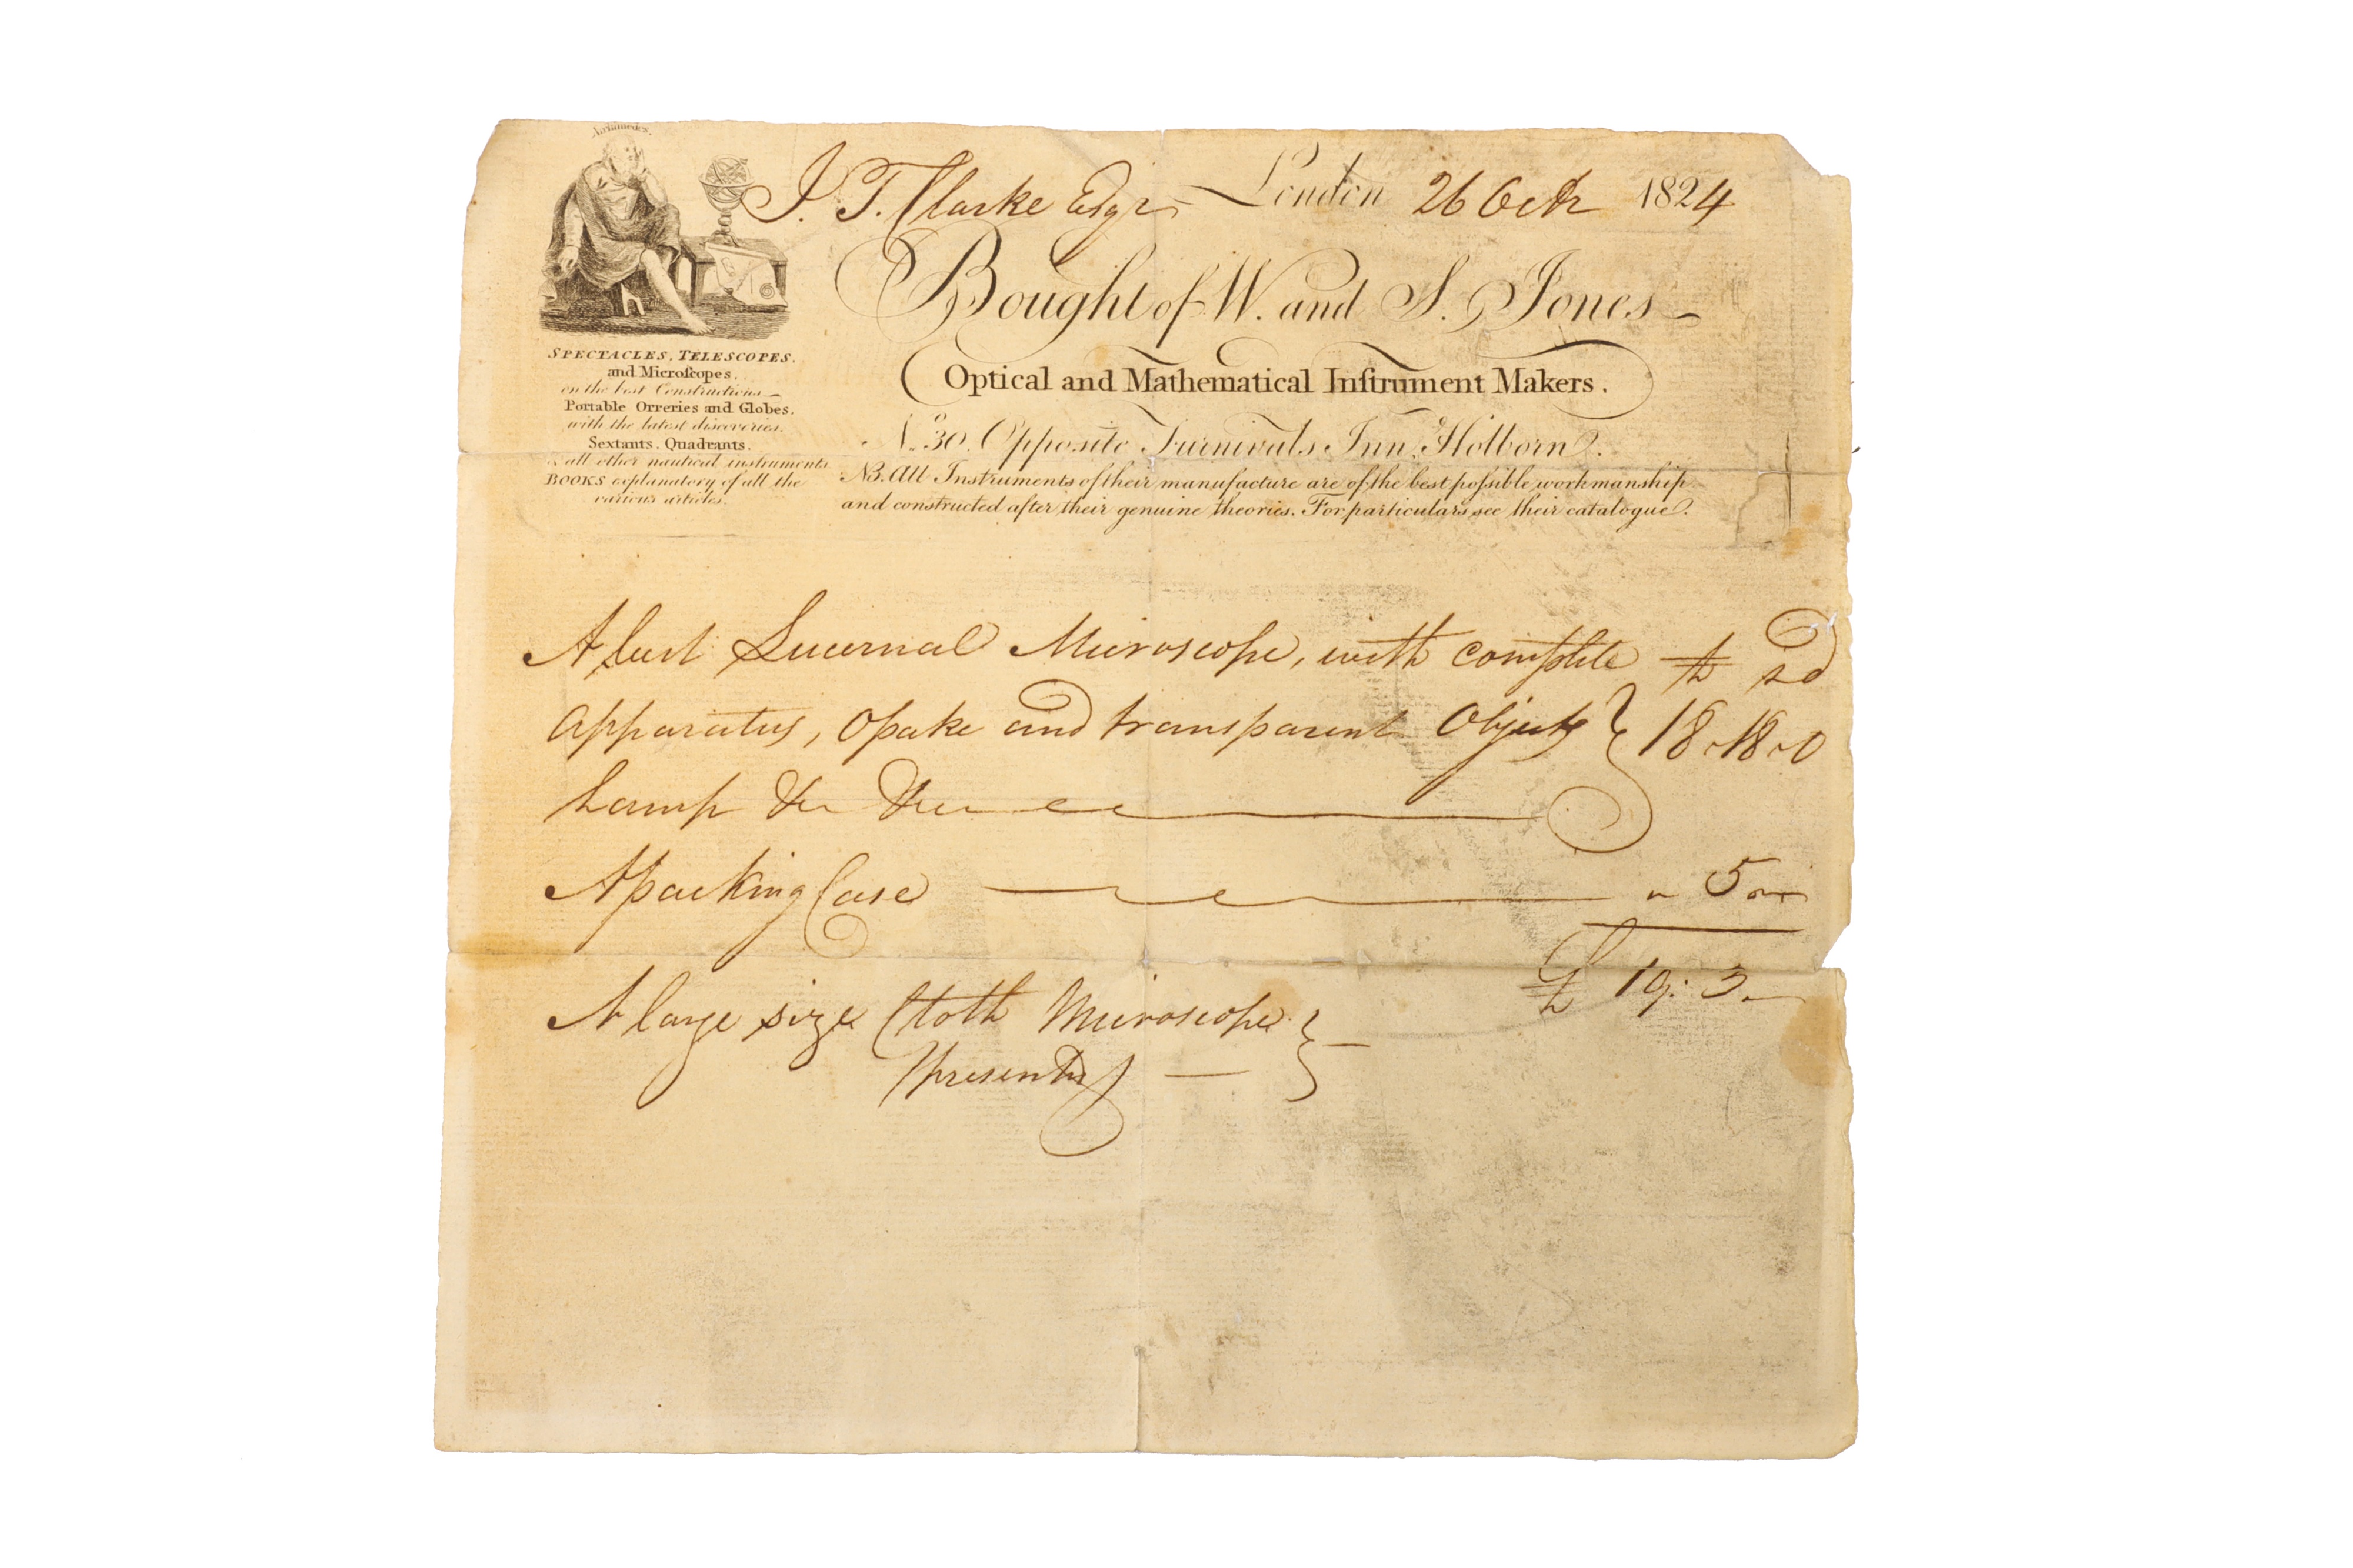 Archimedes.
J. T. Clarke Esqr London 26 Octr 1824
Bought of W. and S. Jones
Optical and Mathematical Inſtrument Makers.
No. 30. Opposite Furnivals Inn, Holborn.
NB. All Instruments of their manufacture are of the best poſsible workmanship
and constructed after their genuine theories. For particulars see their catalogue.
SPECTACLES, TELESCOPES,
and Microſcopes,
on the best Constructions
Portable Orreries and Globes,
with the latest discoveries.
Sextants, Quadrants,
& all other nautical instruments
BOOKS explanatory of all the
various articles.
A best Lucernal Microscope, with complete £ s d
apparatus, Opake and transparent Objects } 18 - 18 - 0
Lamp &c &c
A packing Case - 5 -
£ 19: 3 -
A large size Cloth Microscope } -